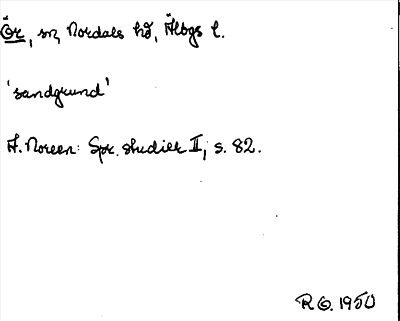 Ör, sn, Nordals hd, Älvbgs l.
'sandgrund'
A. Noreen: Spr. studier II, s. 82.
R G. 1950